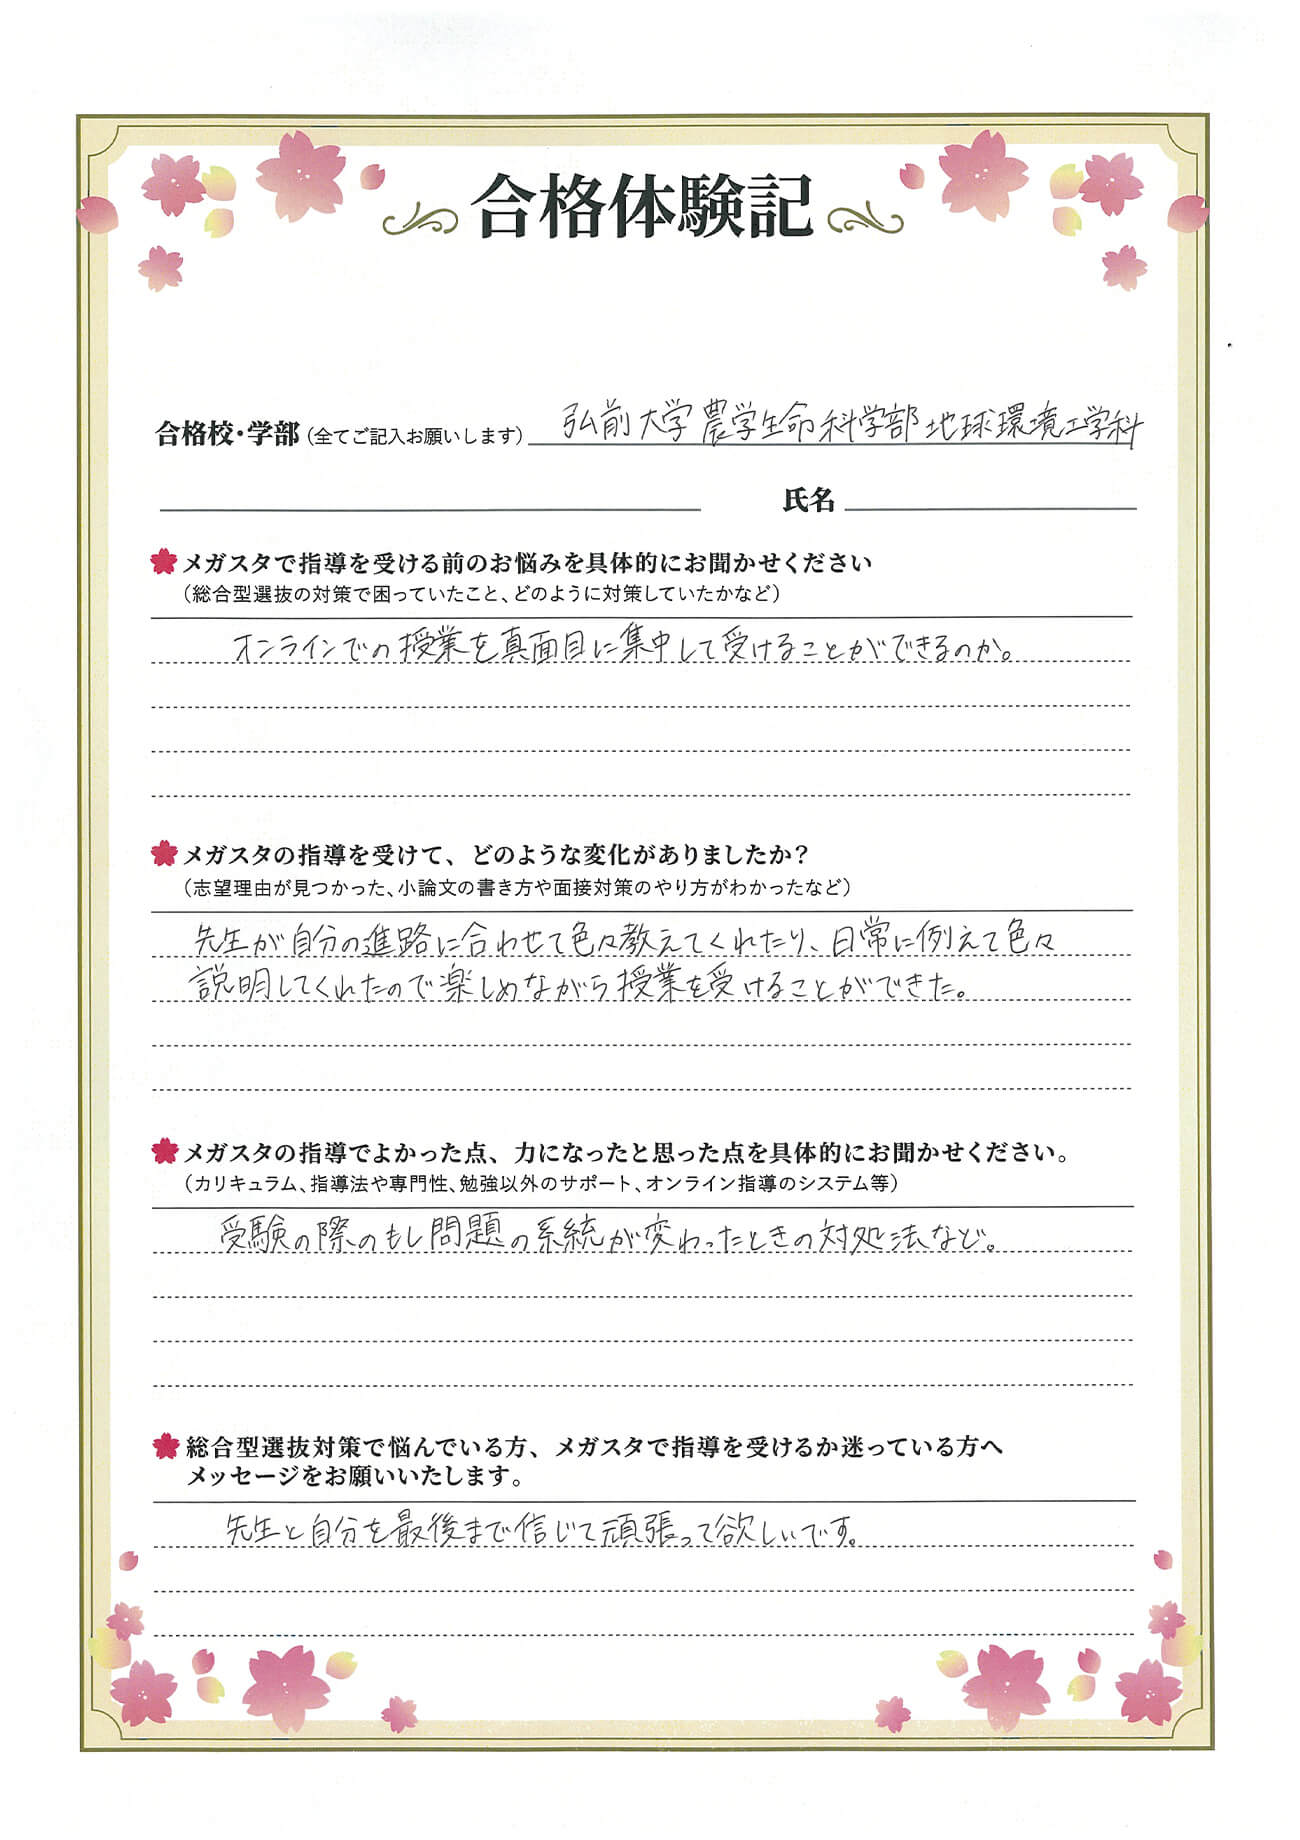 合格体験記
合格校・学部（全てご記入お願いします） 弘前大学農学生命科学部地球環境工学科
氏名
メガスタで指導を受ける前のお悩みを具体的にお聞かせください
（総合型選抜の対策で困っていたこと、どのように対策していたかなど）
オンラインでの授業を真面目に集中して受けることができるのか。
メガスタの指導を受けて、どのような変化がありましたか？
（志望理由が見つかった、小論文の書き方や面接対策のやり方がわかったなど）
先生が自分の進路に合わせて色々教えてくれたり、日常に例えて色々
説明してくれたので楽しめながら授業を受けることができた。
メガスタの指導でよかった点、力になったと思った点を具体的にお聞かせください。
（カリキュラム、指導法や専門性、勉強以外のサポート、オンライン指導のシステム等）
受験の際のもし問題の系統が変わったときの対処法など。
総合型選抜対策で悩んでいる方、メガスタで指導を受けるか迷っている方へ
メッセージをお願いいたします。
先生と自分を最後まで信じて頑張って欲しいです。